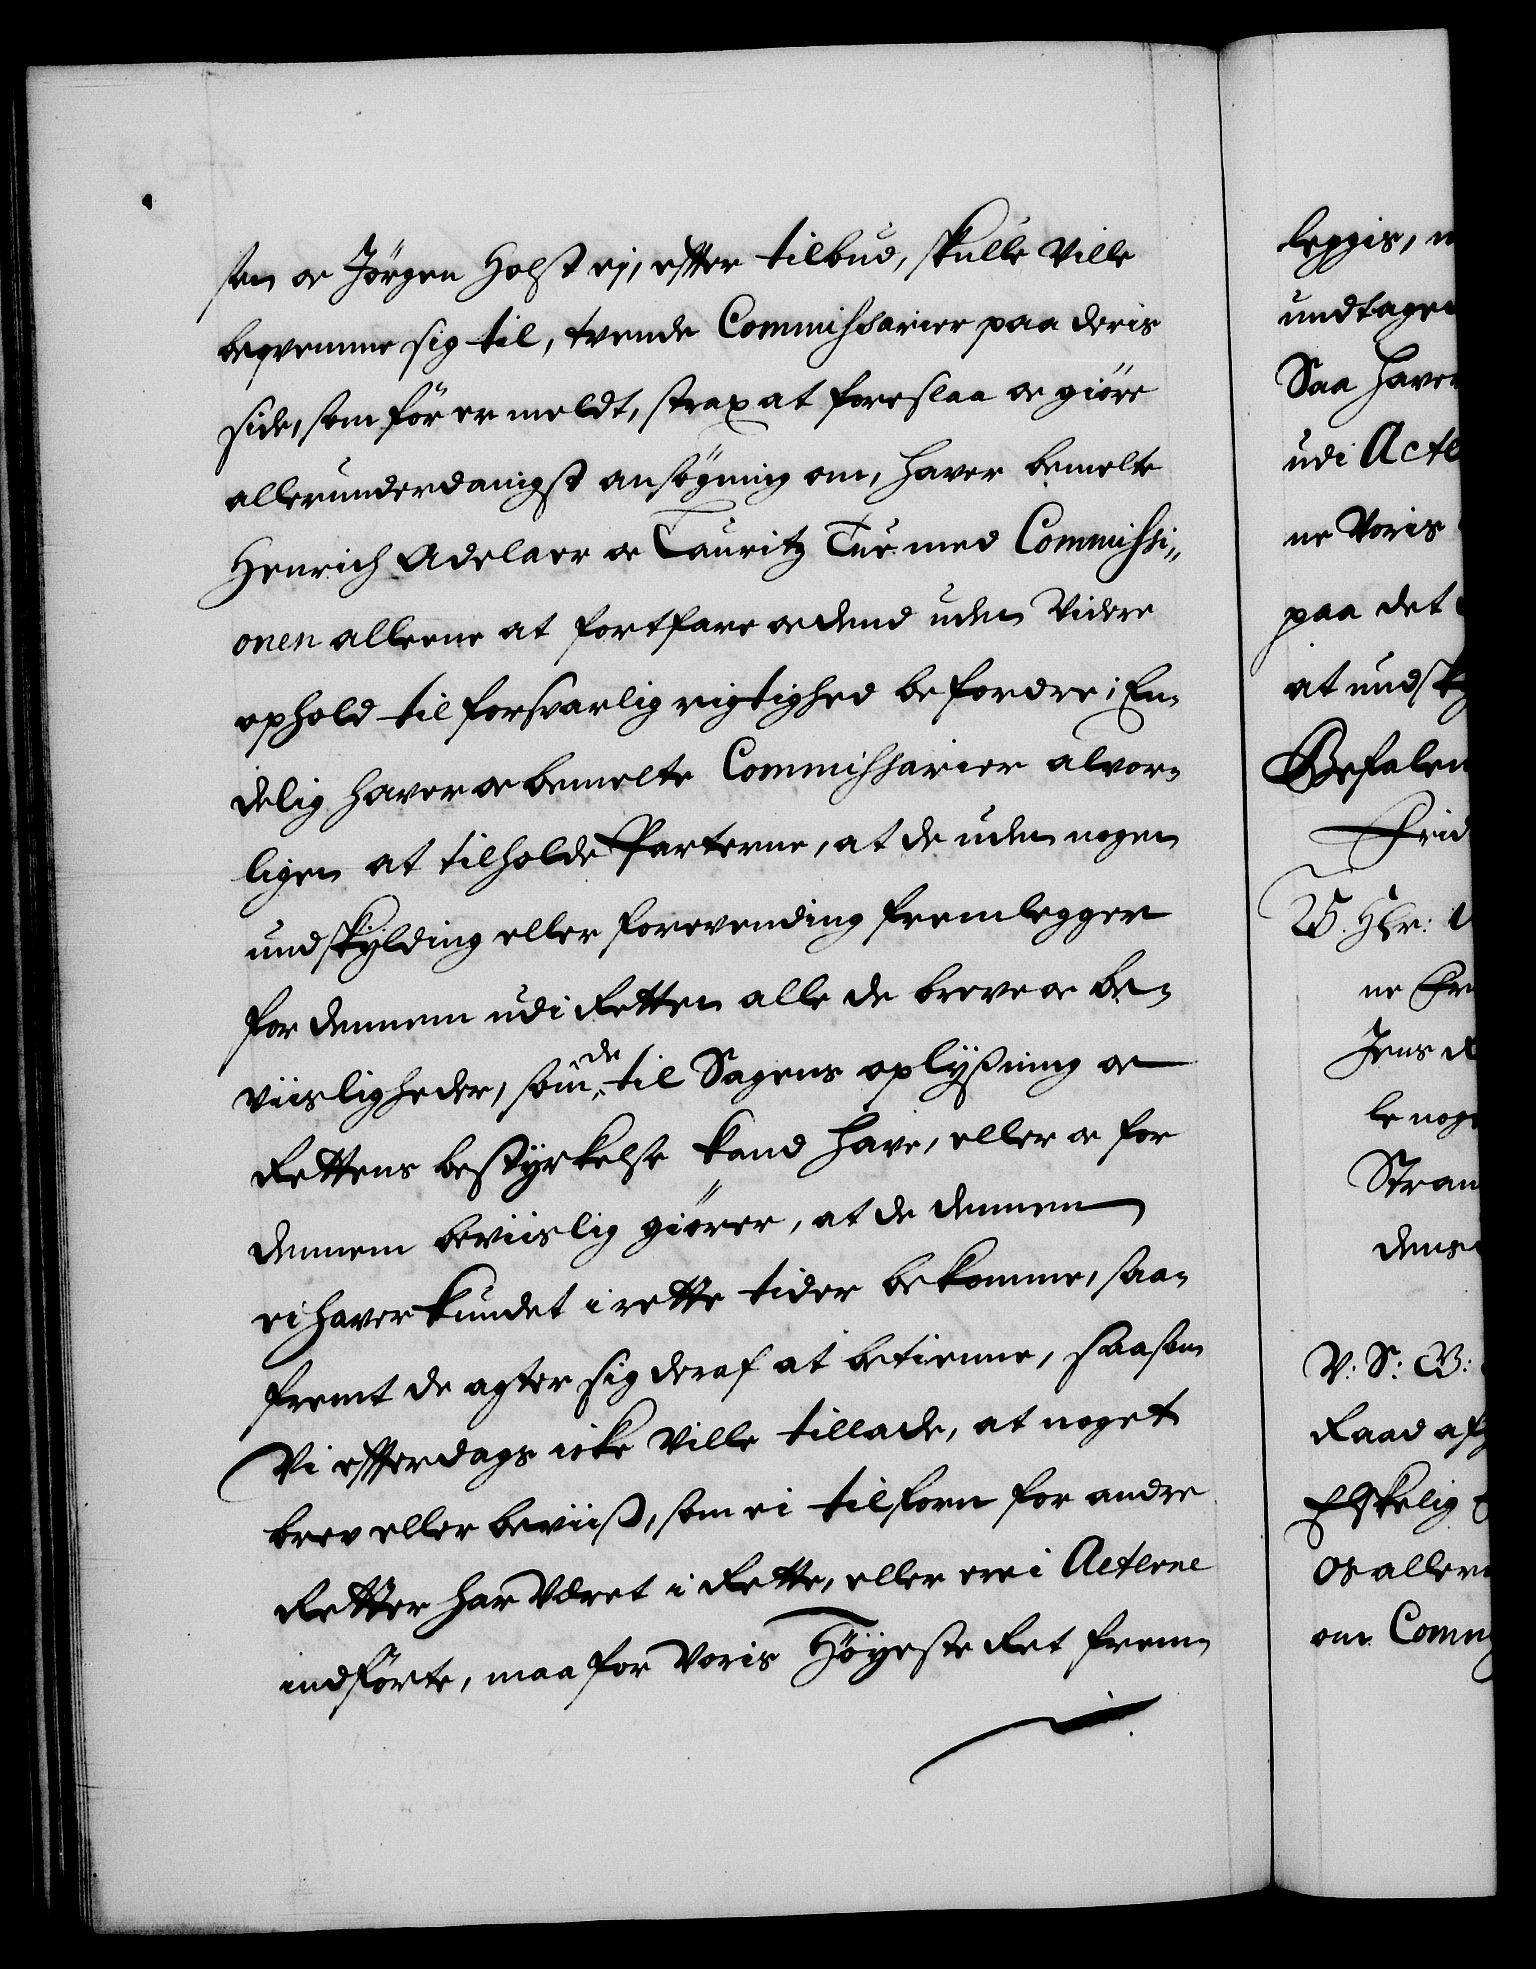 sen og Jørgen Holst ej, effter tilbud, skulle Ville
beqvemme sig til, tvende Commissarier paa deris
side, som før er meldt, strax at foreslaa og giøre
allerunderdanigst ansøgning om, haver bemelte
Henrich Adelaer og Lauritz Tue med Commissi„
onen alleene at fortfare og dend uden Videre
ophold til forsvarlig rigtighed befordre; En„
delig haver og bemelte Commissarier alvor„
ligen at tilholde Parterne, at de uden nogen
undskylding eller forevending fremlegger
for dennem udi Retten alle de breve og be„
viisligheder, som de til Sagens oplysning og
Rettens bestyrkelse kand have, eller og for
dennem beviislig giører, at de dennem
ei haver kundet i rette tider bekomme, saa„
fremt de agter sig deraf at betienne, saasom
Vi effterdags icke Ville tillade, at noget
brev eller beviiß, som ei tilforn for andre
Retter har Været i Rette, eller ere i Acterne
indførte, maa for Voris Høyeste Ret frem„
leggis,
undtagen
Saa haver
udi Acte
ne Voris
paa det
at undsky
Befalen
Frid
Jens
le noge
Stran
V: S: B:
Raad af
Elskelig
Os aller
om Comm